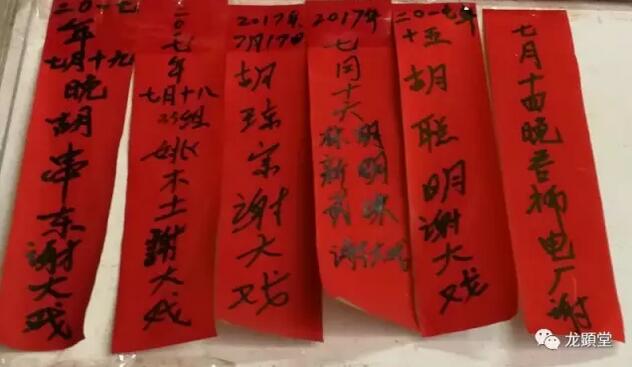 二0一七
年
七月十九
晚胡串东谢大戏
二0一七
年
七月十八
姚木土謝大戏
2017年
7月17日
胡琼宗谢大戏
2017年
七月十六
胡明珠
林新
谢大戏
二0一七年
十五
胡聪明谢大戏
七月十四晚吾柳电厂谢
龙顕堂